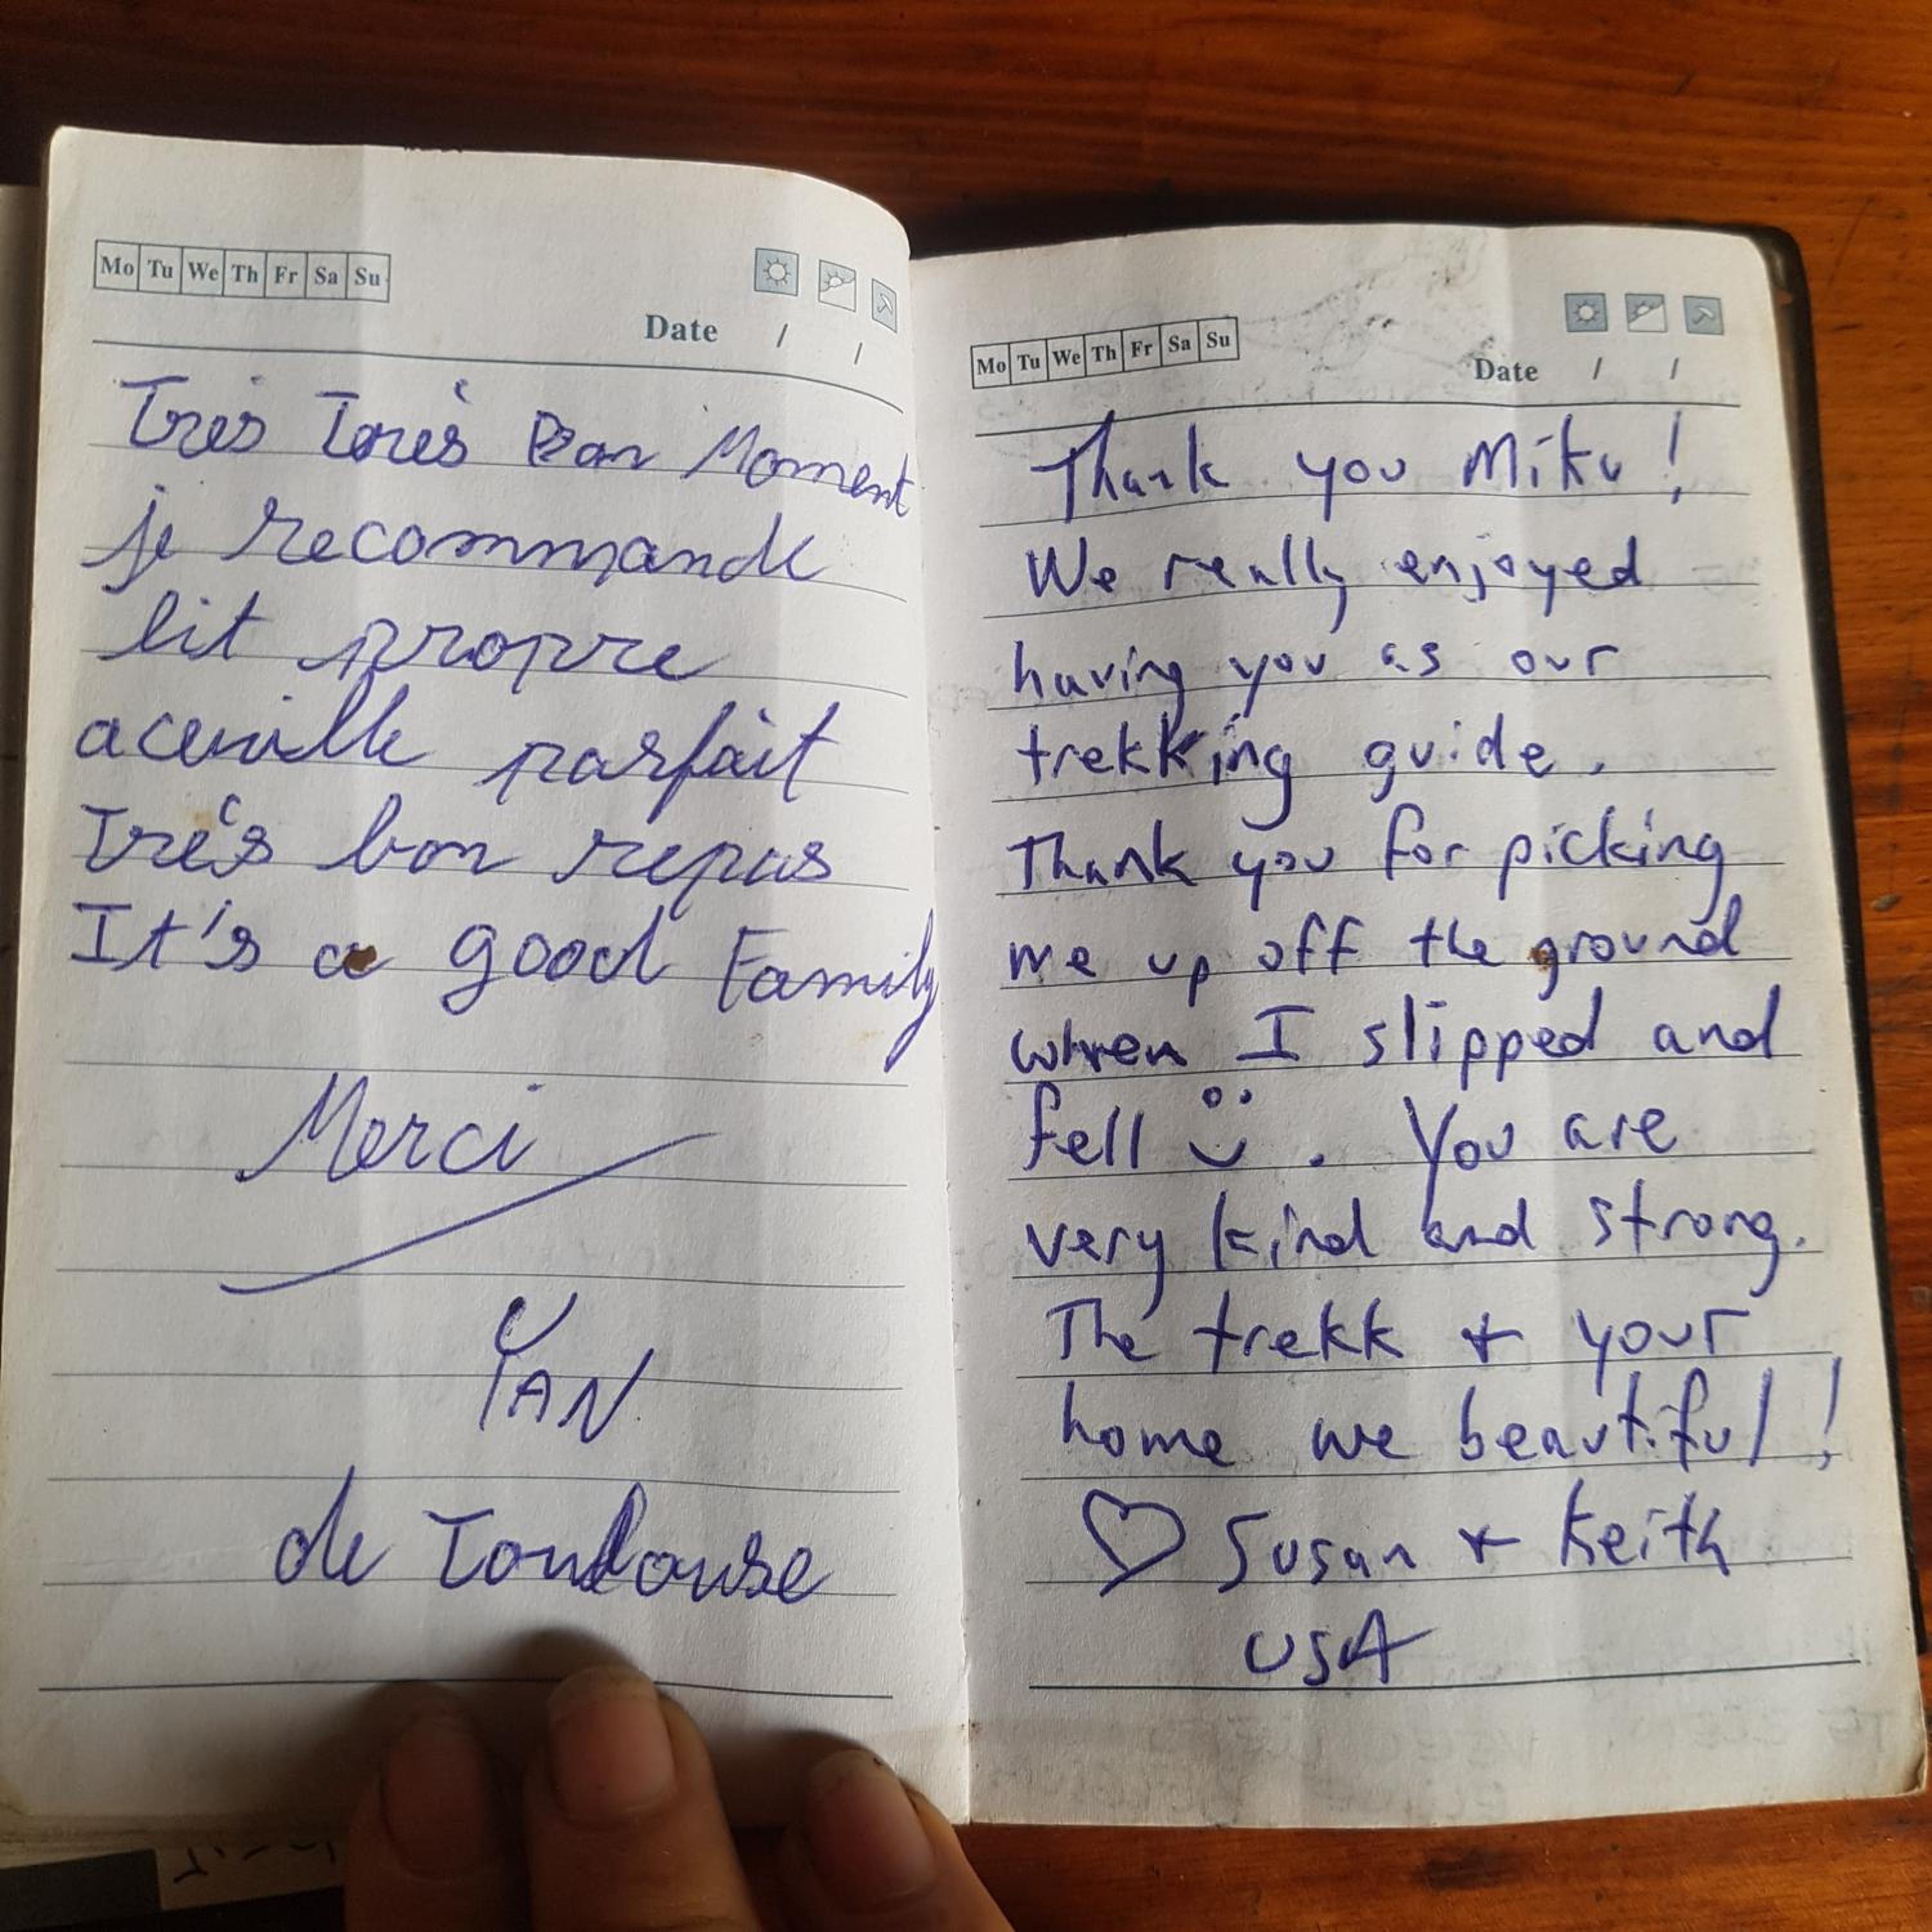 Mo Tu We Th Fr Sa Su
Date / /
Très Très Bon Moment
je recommande
lit propre
aceuille parfait
Très bon repas
It's a good Family
Merci
YAN
de Toulouse
Mo Tu We Th Fr Sa Su
Date / /
Thank you Miku!
We really enjoyed
having you as our
trekking guide.
Thank you for picking
me up off the ground
when I slipped and
fell . You are
very kind and strong.
The trekk + your
home we beautiful!
♡ Susan + Keith
USA